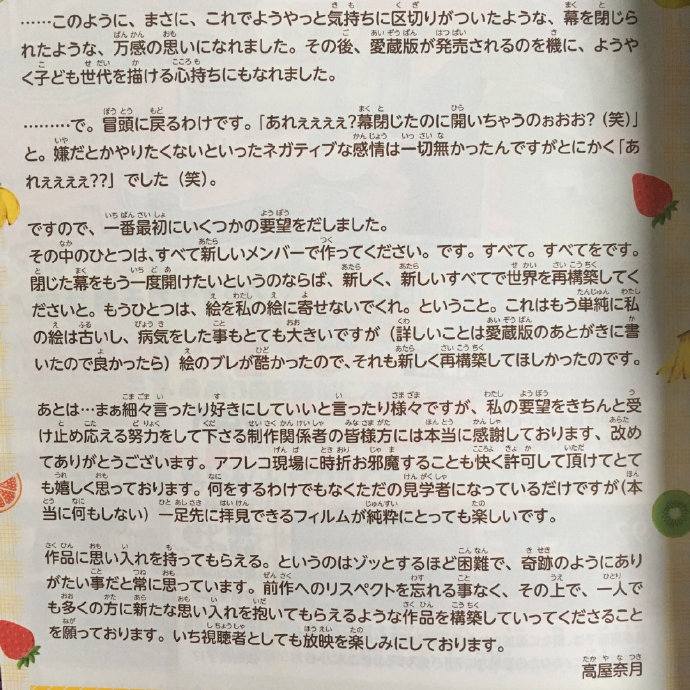 ……このように、まさに、これでようやっと気持ちに区切りがついたような、幕を閉じら
れたような、万感の思いになれました。その後、愛蔵版が発売されるのを機に、ようや
く子ども世代を描ける心持ちにもなれました。
………で。冒頭に戻るわけです。「あれぇぇぇぇ？幕閉じたのに開いちゃうのぉおお？（笑）」
と。嫌だとかやりたくないといったネガティブな感情は一切無かったんですがとにかく「あ
れぇぇぇぇ??」でした（笑）。
ですので、一番最初にいくつかの要望をだしました。
その中のひとつは、すべて新しいメンバーで作ってください。です。すべて。すべてをです。
閉じた幕をもう一度開けたいというのならば、新しく、新しいすべてで世界を再構築してく
ださいと。もうひとつは、絵を私の絵に寄せないでくれ。ということ。これはもう単純に私
の絵は古いし、病気をした事もとても大きいですが（詳しいことは愛蔵版のあとがきに書
いたので良かったら）絵のブレが酷かったので、それも新しく再構築してほしかったのです。
あとは…まぁ細々言ったり好きにしていいと言ったり様々ですが、私の要望をきちんと受
け止め応える努力をして下さる制作関係者の皆様方には本当に感謝しております、改め
てありがとうございます。アフレコ現場に時折お邪魔することも快く許可して頂けてとて
も嬉しく思っております。何をするわけでもなくただの見学者になっているだけですが（本
当に何もしない）一足先に拝見できるフィルムが純粋にとっても楽しいです。
作品に思い入れを持ってもらえる。というのはゾッとするほど困難で、奇跡のようにあり
がたい事だと常に思っています。前作へのリスペクトを忘れる事なく、その上で、一人で
も多くの方に新たな思い入れを抱いてもらえるような作品を構築していってくださること
を願っております。いち視聴者としても放映を楽しみにしております。
高屋奈月